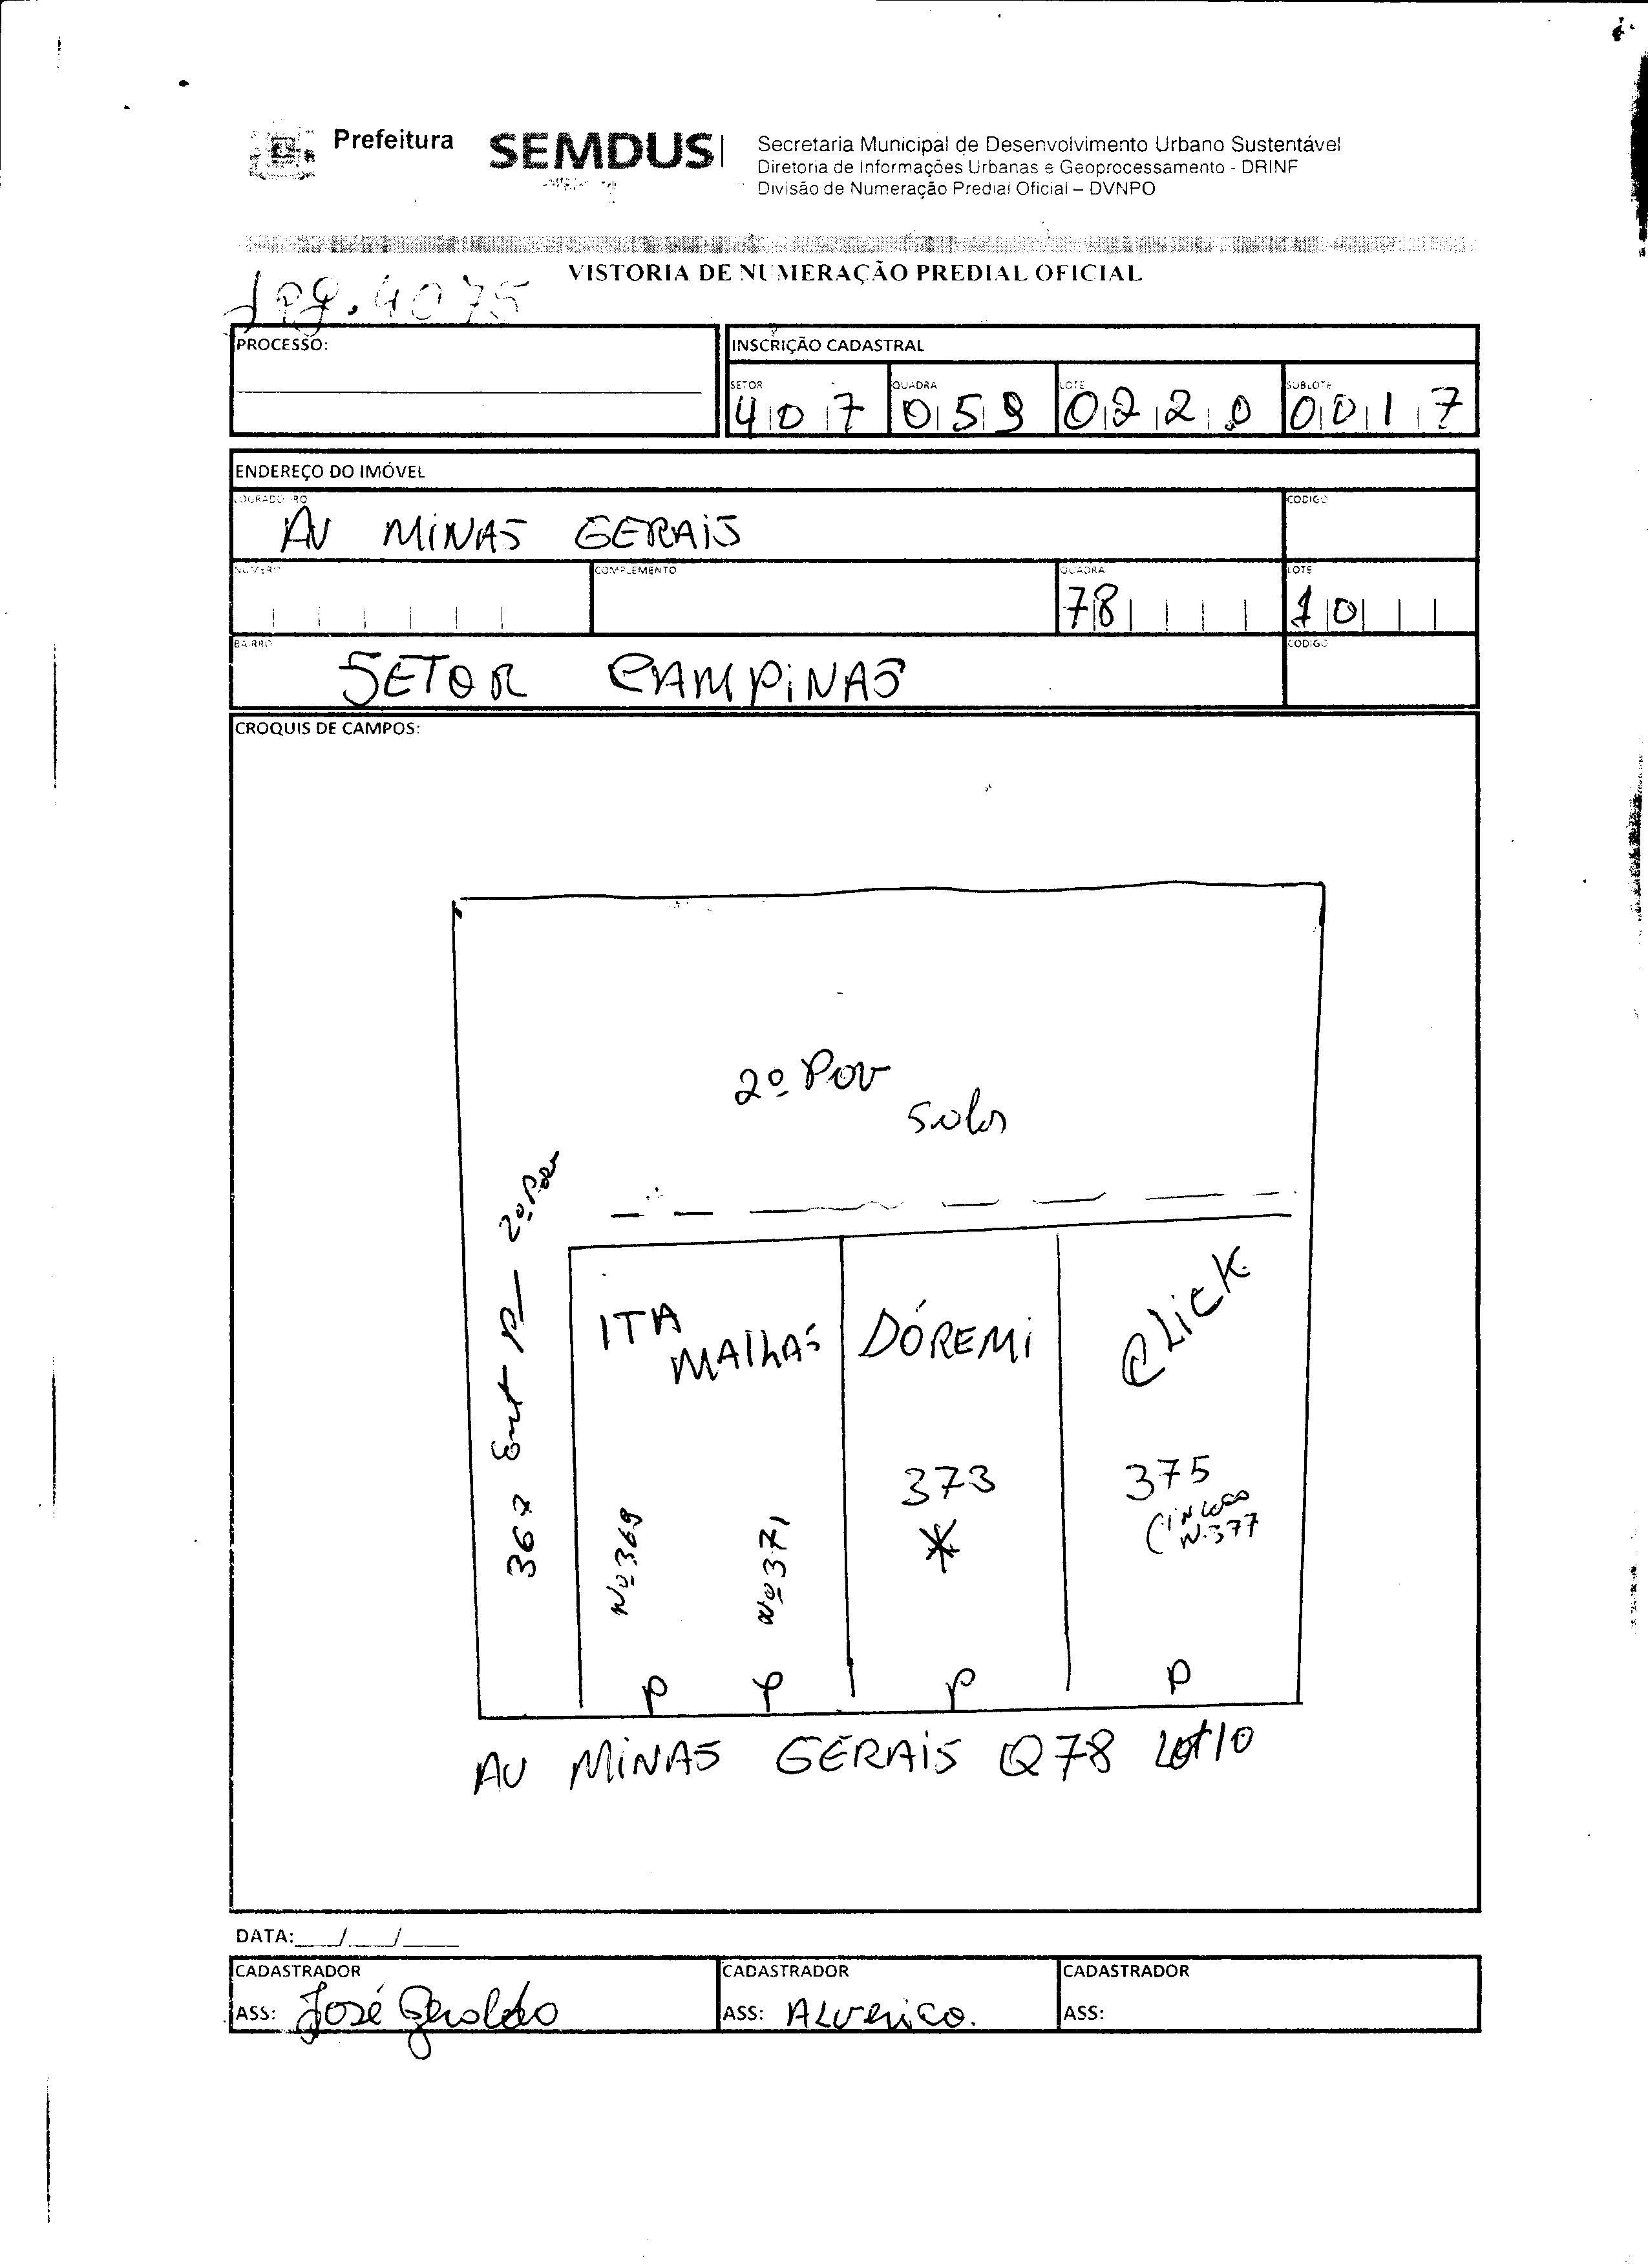 Prefeitura SEMDUS
Secretaria Municipal de Desenvolvimento Urbano Sustentável
Diretoria de Informações Urbanas e Geoprocessamento - DRINF
Divisão de Numeração Predial Oficial – DVNPO
VISTORIA DE NUMERAÇÃO PREDIAL OFICIAL
jpg.4075
PROCESSO:
INSCRIÇÃO CADASTRAL
SETOR QUADRA LOTE SUBLOTE
407 059 0220 0017
ENDEREÇO DO IMÓVEL
LOGRADOURO CODIGO
AV MINAS GERAIS
NUMERO COMPLEMENTO QUADRA LOTE
78 10
BAIRRO CODIGO
SETOR CAMPINAS
CROQUIS DE CAMPOS:
2º Pav
367 Ent P/ 2º Pav
ITA
MALHAS
DÓREMI
CLICK
Nº 369
Nº 371
373
*
375
N. 377
P P P P
AV MINAS GERAIS Q78 Lot 10
DATA:___/___/____
CADASTRADOR CADASTRADOR CADASTRADOR
ASS: José Geraldo ASS: ALVERICO. ASS: